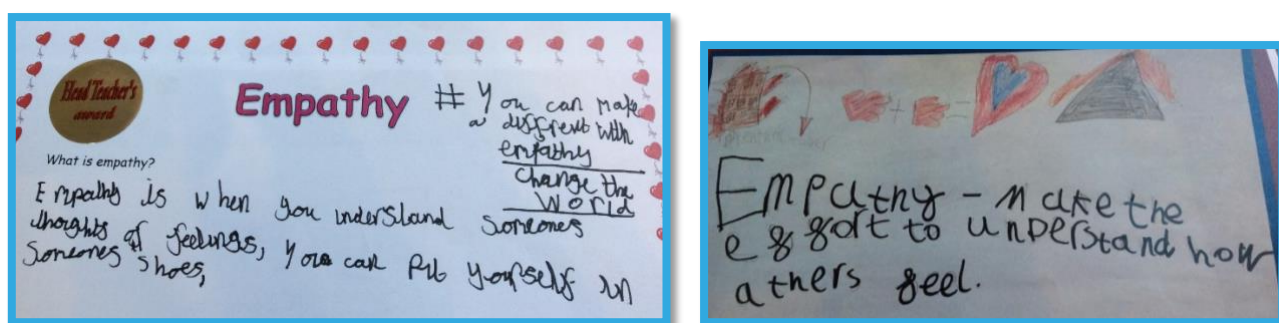 Head Teacher's
award
Empathy
# You can make
a different with
empathy
change the
World
What is empathy?
Empathy is when you understand someones
thoughts of feelings, you can put yourself in
someones shoes,
Empathy - make the
effort to understand how
athers feel.